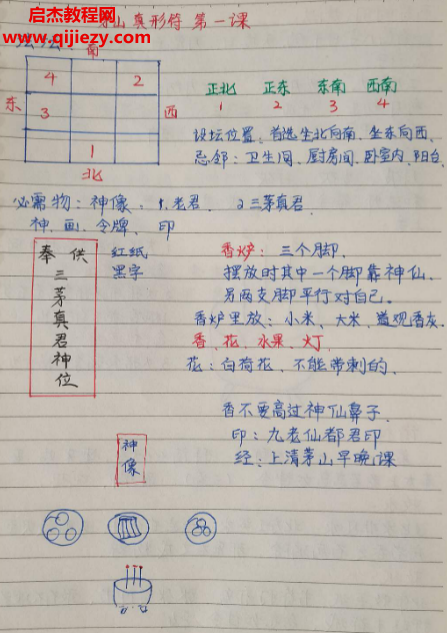 启杰教程网
www.qijiezy.com
茅山真形符 第一课
南
4 2
东 3 西
1
北
正北 正东 东南 西南
1 2 3 4
设坛位置：首选坐北向南、坐东向西
忌邻：卫生间、厨房间、卧室内、阳台
必需物：神像、1.老君、2三茅真君
神、画、令牌、印
奉供
三茅真君神位
红纸
黑字
香炉：三个脚
摆放时其中一个脚靠神仙
另两支脚平行对自己
香炉里放：小米、大米、道观香灰
香、花、水果、灯
花：白荷花、不能带刺的
香不要高过神仙鼻子
印：九老仙都君印
经：上清茅山早晚课
神像